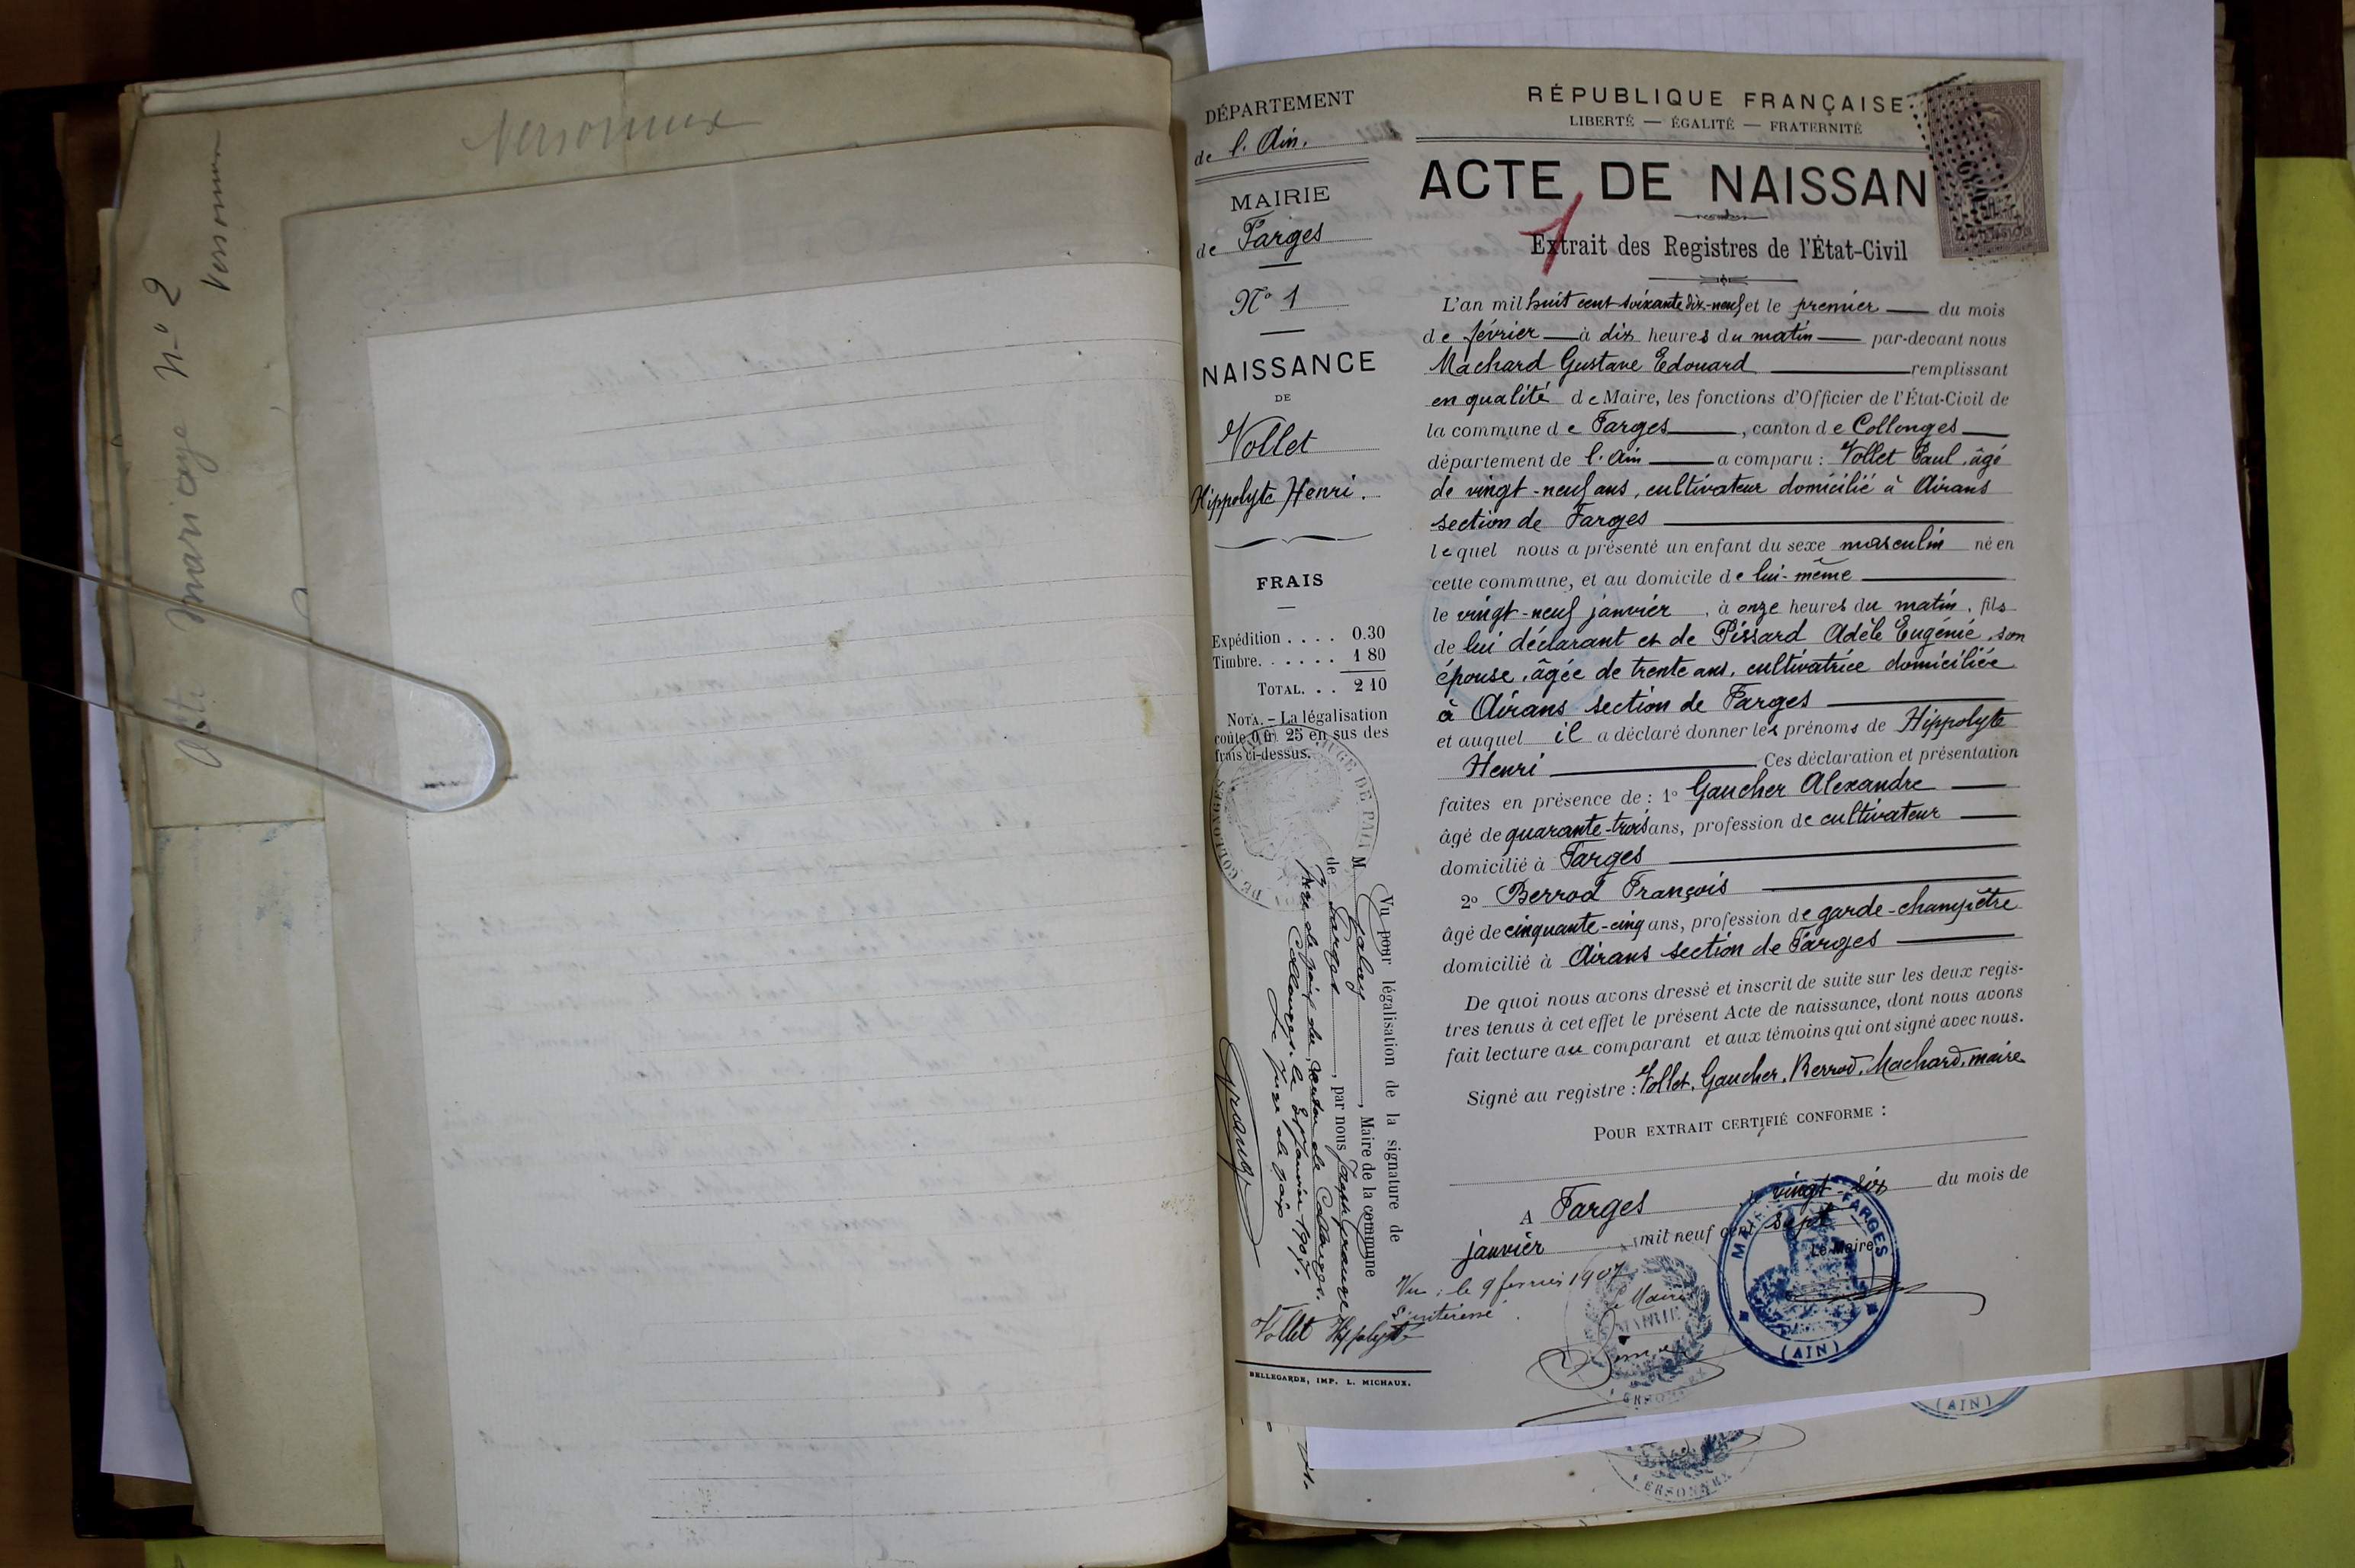 Versonnex
Versonnex
Acte mariage N° 2
DÉPARTEMENT
de l'Ain.
MAIRIE
de Farges
N° 1
NAISSANCE
DE
Vollet
Hippolyte Henri.
FRAIS
Expédition . . . . 0.30
Timbre. . . . . . 1 80
TOTAL. . . 2 10
NOTA. – La légalisation
coûte 0 fr. 25 en sus des
frais ci-dessus.
JUGE DE PAIX DE COLLONGES
Vu pour légalisation de la signature de
M. Jalay, Maire de la commune
de Farges, par nous Joseph Grange
Juge de paix du Canton de Collonges.
Collonges, le 26 Janvier 1907.
Le Juge de paix
Grange
Vollet Hippolyte
BELLEGARDE, IMP. L. MICHAUX.
RÉPUBLIQUE FRANÇAISE
LIBERTÉ — ÉGALITÉ — FRATERNITÉ
ACTE DE NAISSAN
1
Extrait des Registres de l'État-Civil
L'an mil huit cent soixante dix-neuf et le premier du mois
de février à dix heures du matin par-devant nous
Machard Gustave Edouard remplissant
en qualité de Maire, les fonctions d'Officier de l'État-Civil de
la commune de Farges, canton de Collonges
département de l'Ain a comparu : Vollet Paul, âgé
de vingt-neuf ans, cultivateur domicilié à Airans
section de Farges
lequel nous a présenté un enfant du sexe masculin né en
cette commune, et au domicile de lui-même
le vingt-neuf janvier, à onze heures du matin, fils
de lui déclarant et de Pissard Adèle Eugénie, son
épouse, âgée de trente ans, cultivatrice domiciliée
à Airans section de Farges
et auquel il a déclaré donner les prénoms de Hippolyte
Henri Ces déclaration et présentation
faites en présence de : 1° Gaucher Alexandre
âgé de quarante-trois ans, profession de cultivateur
domicilié à Farges
2° Berrod François
âgé de cinquante-cinq ans, profession de garde-champêtre
domicilié à Airans section de Farges
De quoi nous avons dressé et inscrit de suite sur les deux regis-
tres tenus à cet effet le présent Acte de naissance, dont nous avons
fait lecture au comparant et aux témoins qui ont signé avec nous.
Signé au registre : Vollet, Gaucher, Berrod, Machard, maire
POUR EXTRAIT CERTIFIÉ CONFORME :
A Farges le vingt-six du mois de
janvier mil neuf cent sept
Le Maire,
MAIRIE FARGES
(AIN)
Vu : le 9 fevrier 1907
L'intéressé.
Le Maire
MAIRIE
VERSONNEX
(AIN)
VERSONNEX